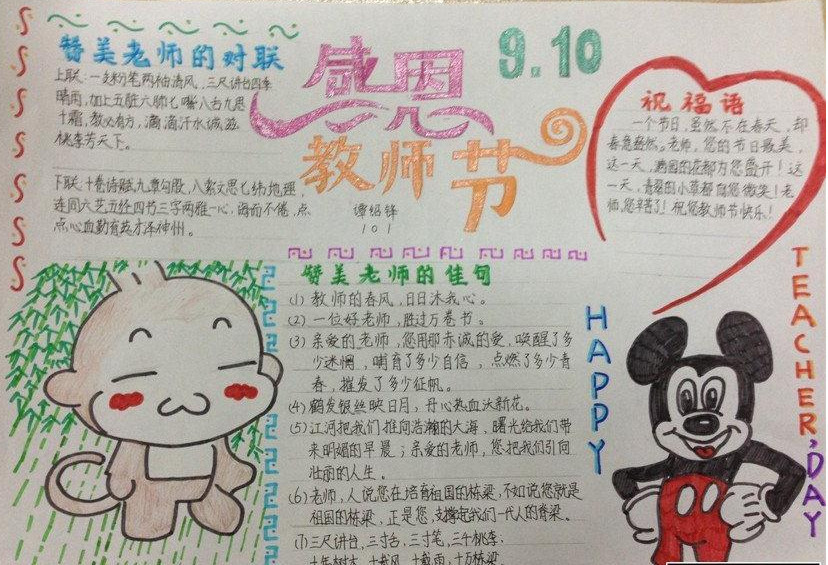 赞美老师的对联
上联:一支粉笔两袖清风,三尺讲台四季
晴雨,加上五脏六腑七嘴八舌九思
十霜,教必有方,滴滴汗水诚滋
桃李芳天下。
下联:十卷诗赋九章勾股,八索文思七纬地理,
连同六艺五经四书三字两雅一心,诲而不倦,点
点心血勤育英才泽神州。
感恩
教师节
9.10
谭绍锋
101
祝福语
一个节日,虽然不在春天,却
春意盎然。老师,您的节日最美,
这一天,满园的花都为您盛开!这
一天,青翠的小草都向您微笑!老
师,您辛苦了!祝您教师节快乐!
赞美老师的佳句
(1) 教师的春风,日日沐我心。
(2) 一位好老师,胜过万卷书。
(3) 亲爱的老师,您用那赤诚的爱,唤醒了多
少迷惘,哺育了多少自信,点燃了多少青
春,摧发了多少征帆。
(4) 鹤发银丝映日月,丹心热血沃新花。
(5) 江河把我们推向浩瀚的大海,曙光给我们带
来明媚的早晨;亲爱的老师,您把我们引向
壮丽的人生。
(6) 老师,人说您在培育祖国的栋梁,不如说您就是
祖国的栋梁,正是您,支撑起我们一代人的脊梁。
(7) 三尺讲台,三寸舌,三寸笔,三千桃李;
十年树木,十载风,十载雨,十万栋梁
HAPPY
TEACHER,DAY